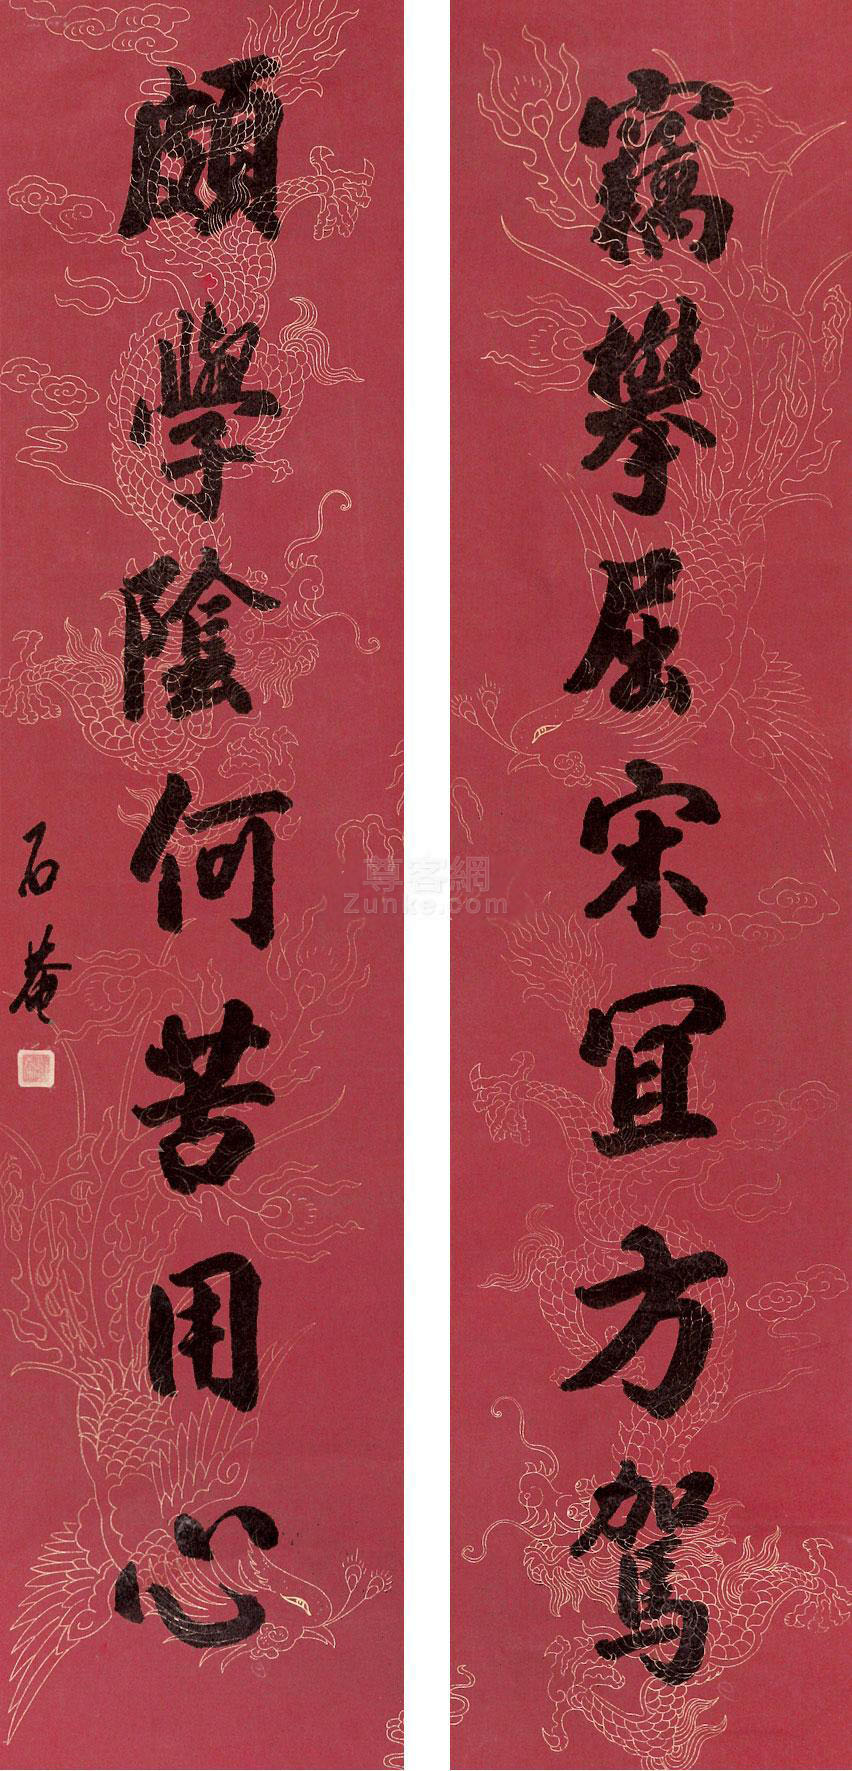 竊攀屈宋宜方駕
頗學陰何苦用心
石菴
尊客網
Zunke.com